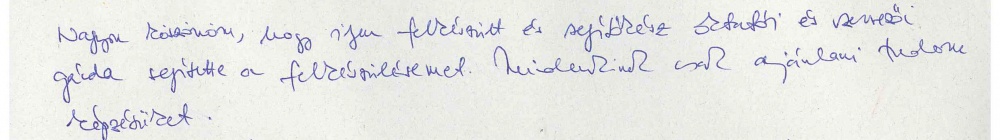 Nagyon köszönöm, hogy ilyen felkészült és segítőkész oktatói és szervezői
gárda segítette a felkészülésemet. Mindenkinek csak ajánlani tudom a
képzésüket.